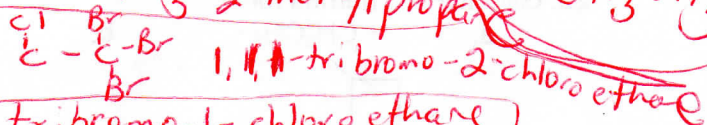 2-methylpropane
Cl Br
C - C - Br 1,1,1-tribromo-2-chloroethane
Br
tribromo-1-chloroethane